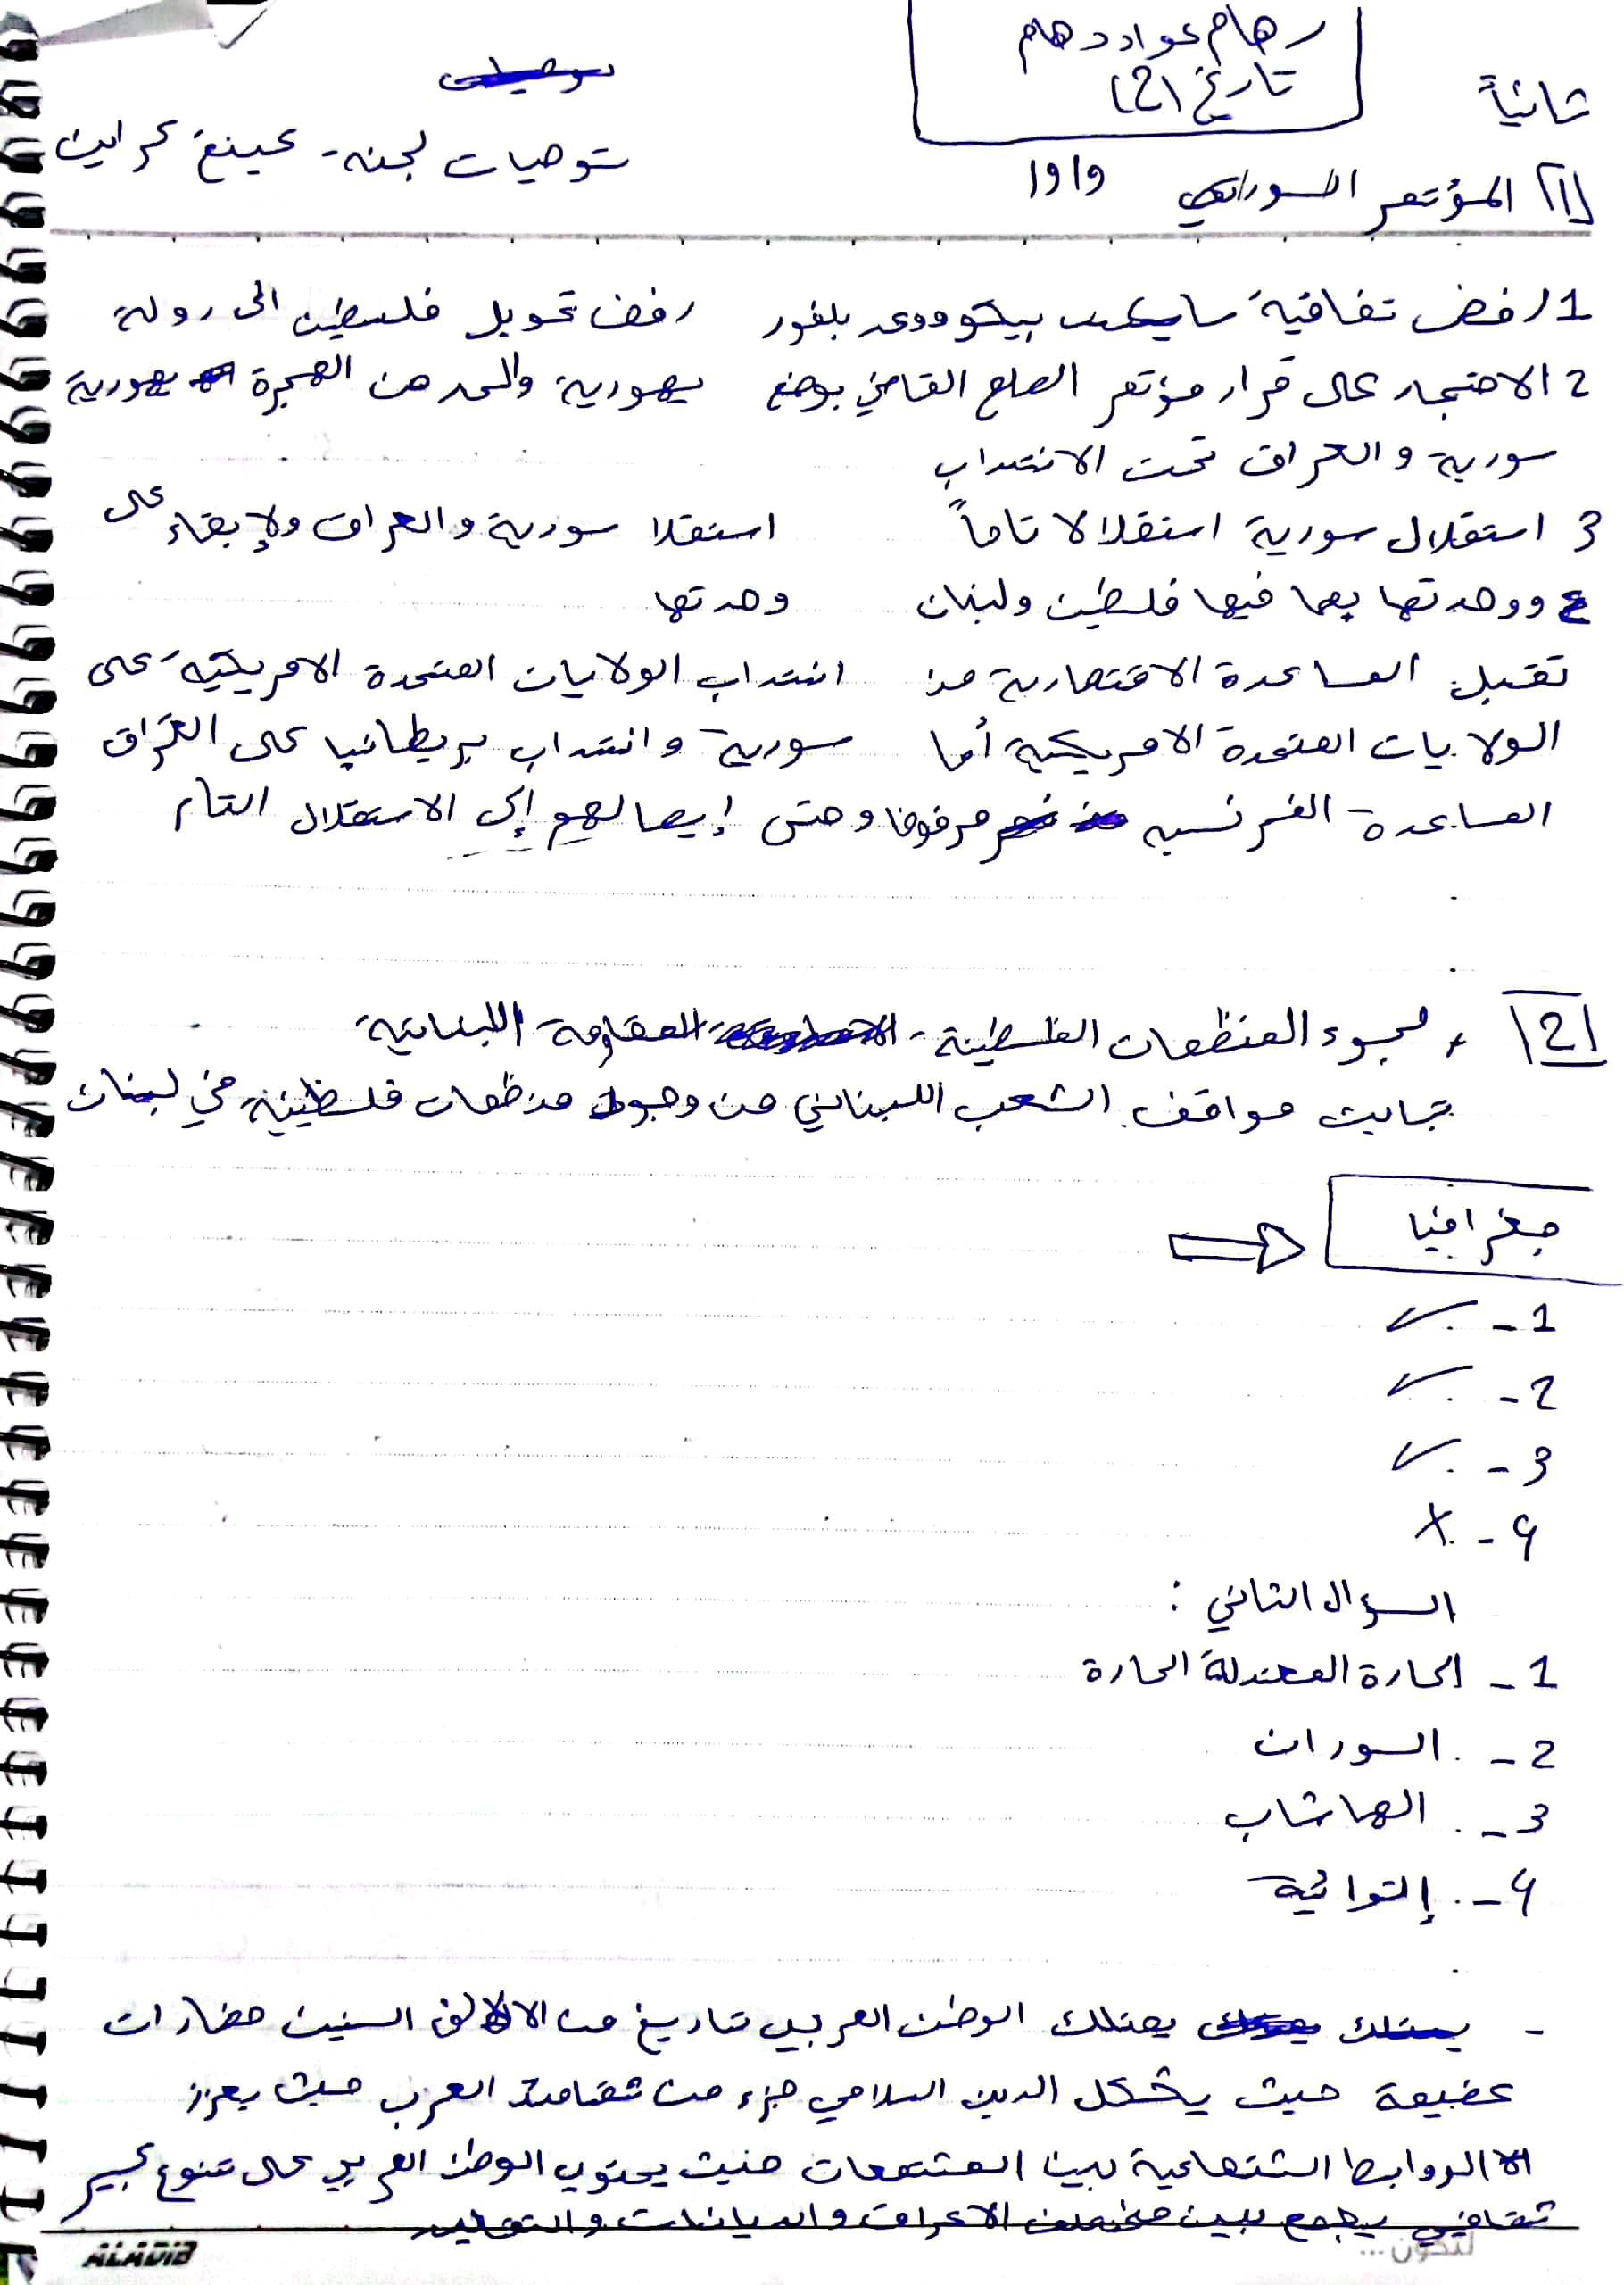 رهام عواد دهام
تاريخ (2)
ثانياً
توصيات لجنه - كينغ كراين
1) المؤتمر السوري 1919
1 رفض تفاقية سايكس بيكو ووعد بلفور
رفض تحويل فلسطين الى دولة
2 الاحتجاد على قرار مؤتمر الصلح القاضي بوضع
يهودية والحد من الهجرة يهودية
سورية والعراق تحت الانتداب
3 استقلال سورية استقلالا تاماً
استقلا سورية والعراق ولإبقاء على
4 ووحدتها بما فيها فلسطين ولبنان
وحدتها
تقبل المساعدة الاقتصادية من
انتداب الولايات المتحدة الامريكية على
الولايات المتحدة الامريكية أما
سورية وانتداب بريطانيا على العراق
المساعدة الفرنسيه مرفوضا
وحتى إيصالهم إلى الاستقلال التام
2) لجوء المنظمات الفلسطينة - المقاومة اللبنانية
تجابت مواقف الشعب اللبناني من وجود منظمات فلسطينية في لبنان
جغرافيا
1 - ✓
2 - ✓
3 - ✓
4 - X
السؤال الثاني :
1 - الحارة المعتدلة الحارة
2 - السودان
3 - الهاشاب
4 - إلتوائية
- يمتلك الوطن العربي تاريخ من الالاف السنين حضارات
عضيمة حيث يشكل الدين السلامي جزء من ثقافة العرب حيث يعزز
الروابط الشتماعية بين المشتمعات حيث يحتوي الوطن العربي على تنوع كبير
ثقافي يجمع بين مختلف الاعراق والديانات والتقاليد
ALADIB
لتكون ...